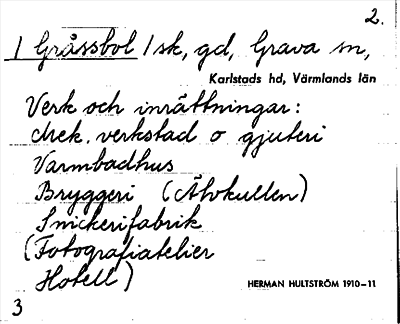 2.
/ Gråssbol / sk, gd, Grava sn,
Karlstads hd, Värmlands län
Verk och inrättningar:
Mek. verkstad o gjuteri
Varmbadhus
Bryggeri (Älvkullen)
Snickerifabrik
(Fotografiatelier
Hotell)
HERMAN HULTSTRÖM 1910-11
3